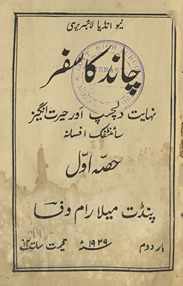 نیو انڈیا لائبریری
چاند کا سفر
نہایت دلچسپ اور حیرت انگیز
سائنٹفک افسانہ
حصہ اوّل
پنڈت میلا رام وفا
بار دوم
۱۹۳۹ء
قیمت